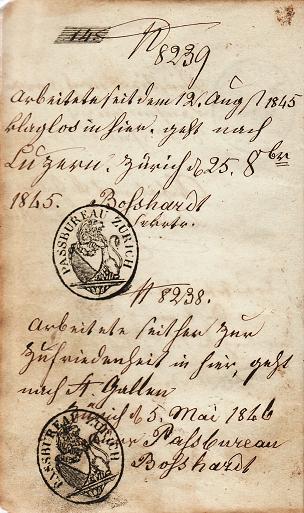 145
N 8239
Arbeitete seit dem 12. Augst 1845
klaglos in hier. geht nach
Luzern. Zürich d 25. 8br
1845. Boßhardt
Sekretr.
PASSBUREAU ZÜRICH
N 8238.
Arbeitete seither zur
Zufriedenheit in hier, geht
nach St. Gallen
Zürich d 5. Mai 1846
Passbureau
Boßhardt
PASSBUREAU ZÜRICH